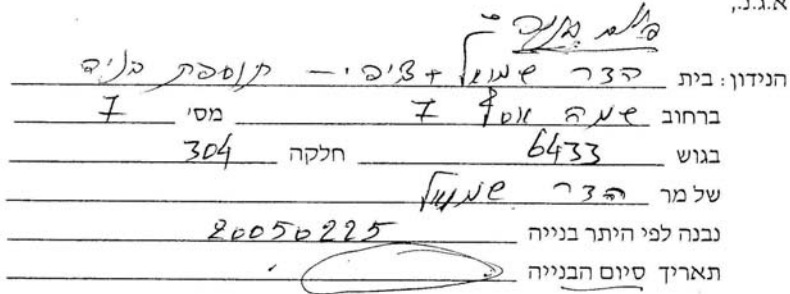 א.ג.נ.,
הנידון: בית הדר שמואל + ציפי - תוספת בניה
ברחוב שמחה אסף 7 מס' 7
בגוש 6433 חלקה 304
של מר הדר שמואל
נבנה לפי היתר בנייה 20050225
תאריך סיום הבנייה